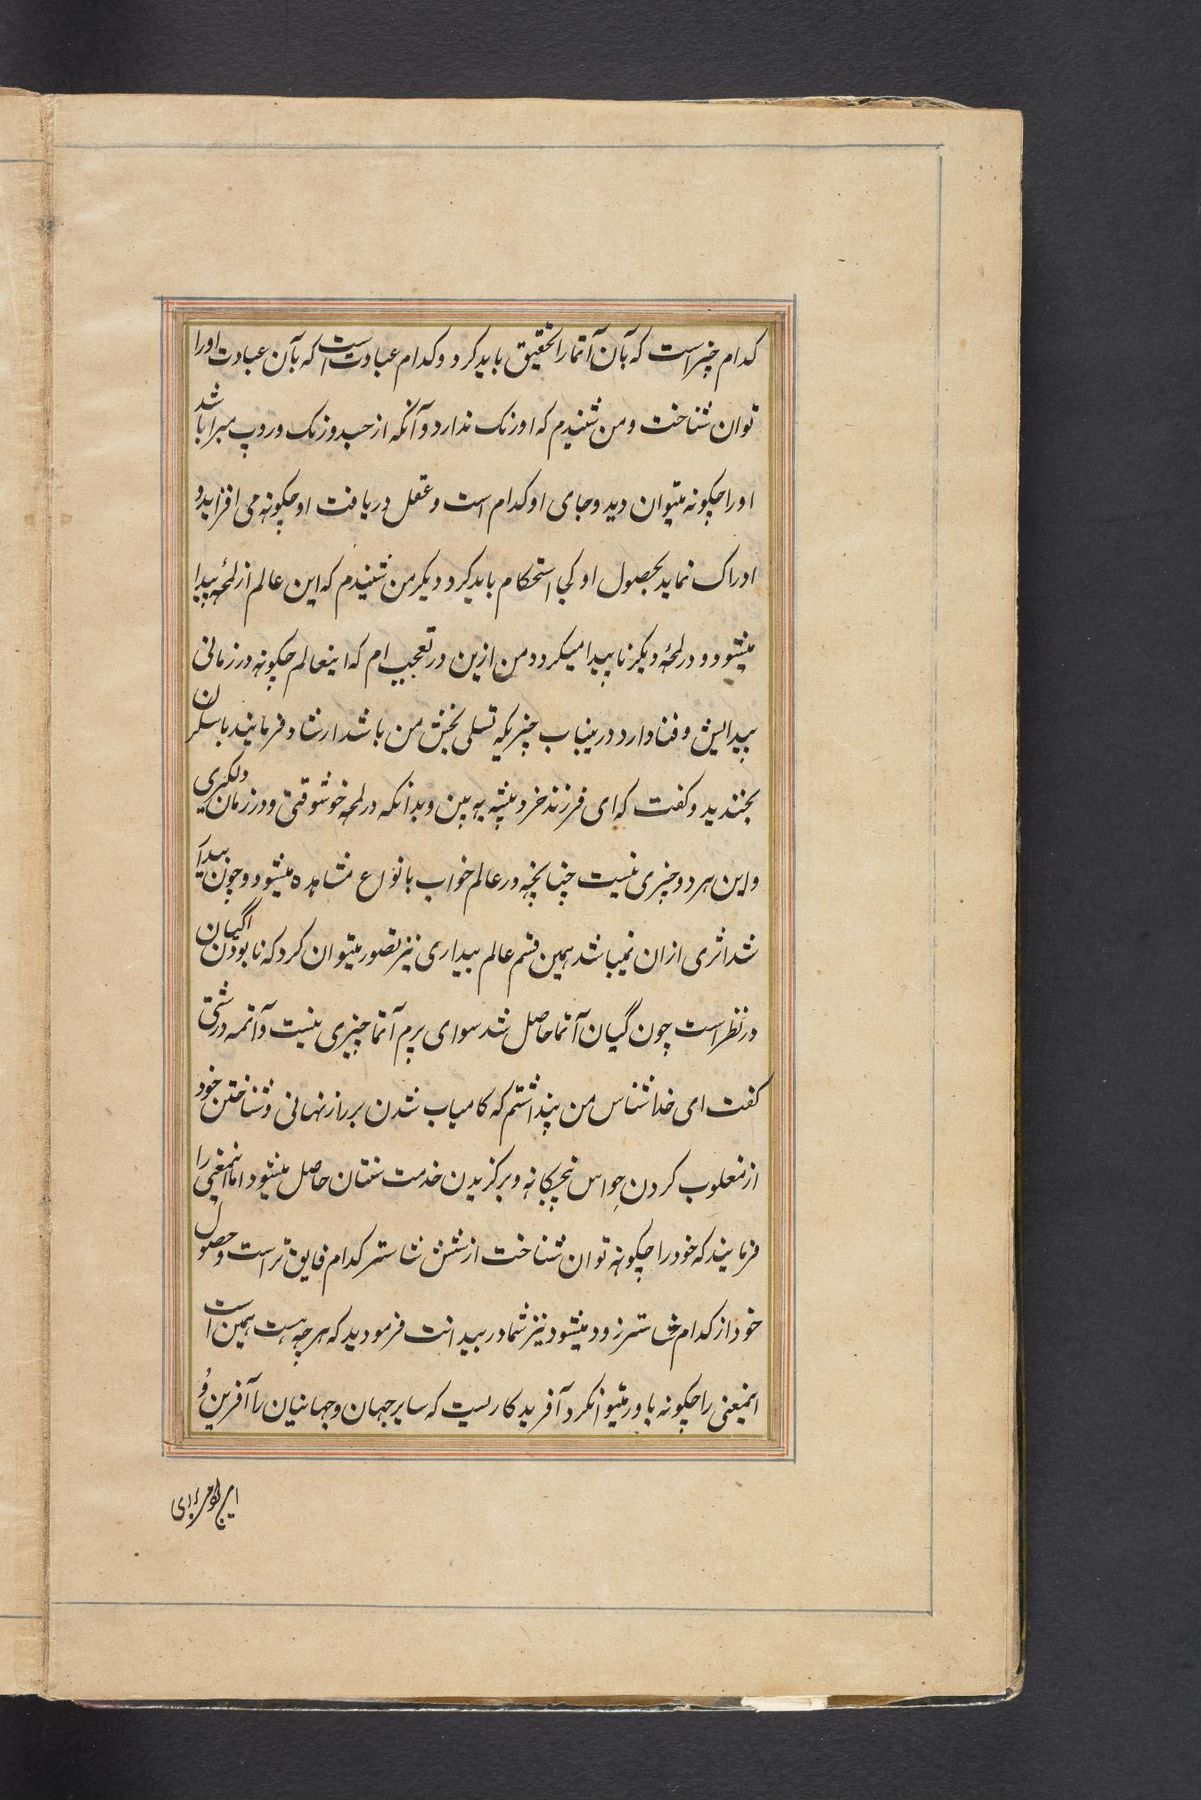 کدام چیز است که بآن آتما را تحقیق باید کرد و کدام عبادت است که بآن عبادت او را
توان شناخت و من شنیدم که او رنگ ندارد و آنکه از حد و رنگ و روپ مبرا باشد
او را چگونه میتوان دید و جای او کدام است و عقل دریافت او چگونه می افزاید و
ادراک نماید بحصول او کی استحکام باید کرد دیگر من شنیدم که این عالم از لمحهٔ پیدا
میشود و در لمحهٔ دیگر ناپیدا میگردد من ازین در تعجب ام که اینعالم چگونه در زمانی
پیدایش و فنا دارد درینباب چیزیکه تسلی بخش من باشد ارشاد فرمایند
بخندید و گفت که ای فرزند خرد پیشه ببین و بدانکه در لمحه خوشوقتی و در زمان دلگیری
و این هر دو چیزی نیست چنانچه در عالم خواب بانواع مشاهده میشود و چون بیدار
شد اثری ازان نمیباشد همین قسم عالم بیداری نیز تصور میتوان کرد که تا بودن اگیان
در نظر است چون گیان آتما حاصل شد سوای پرم آتما چیزی نیست
گفت ای خداشناس من پنداشتم که کامیاب شدن بر راز نهانی و شناختن خود
از مغلوب کردن حواس پنچگانه و برگزیدن خدمت سنتان حاصل میشود اما اینمعنی را
فرمایند که خود را چگونه توان شناخت از شش شاستر کدام فایق تر است و حصول
خود از کدام شاستر زود میشود نیز شما در بیدانت فرمودید که هر چه هست همین است
اینمعنی را چگونه باور میتوانکرد آفریدگاریست که سایر جهان و جهانیان را آفرین